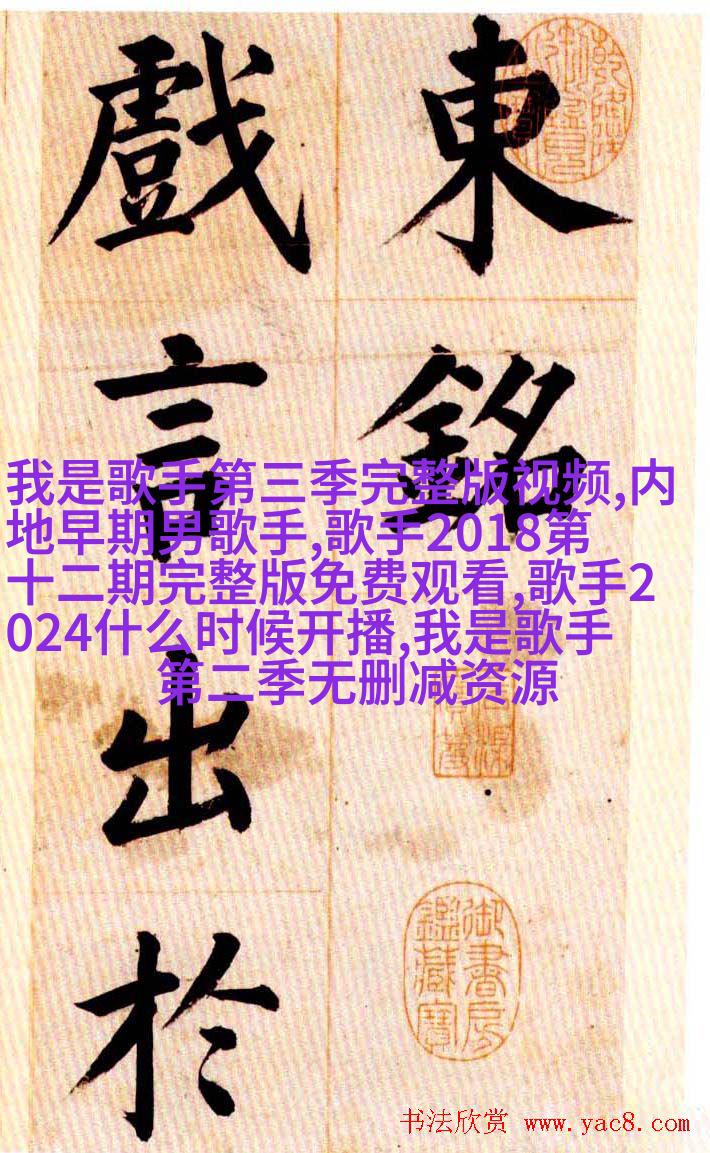 東銘
戲言出於
我是歌手第三季完整版视频,内
地早期男歌手,歌手2018第
十二期完整版免费观看,歌手2
024什么时候开播,我是歌手
第二季无删减资源
御書房
鑑藏寶
书法欣赏 www.yac8.com